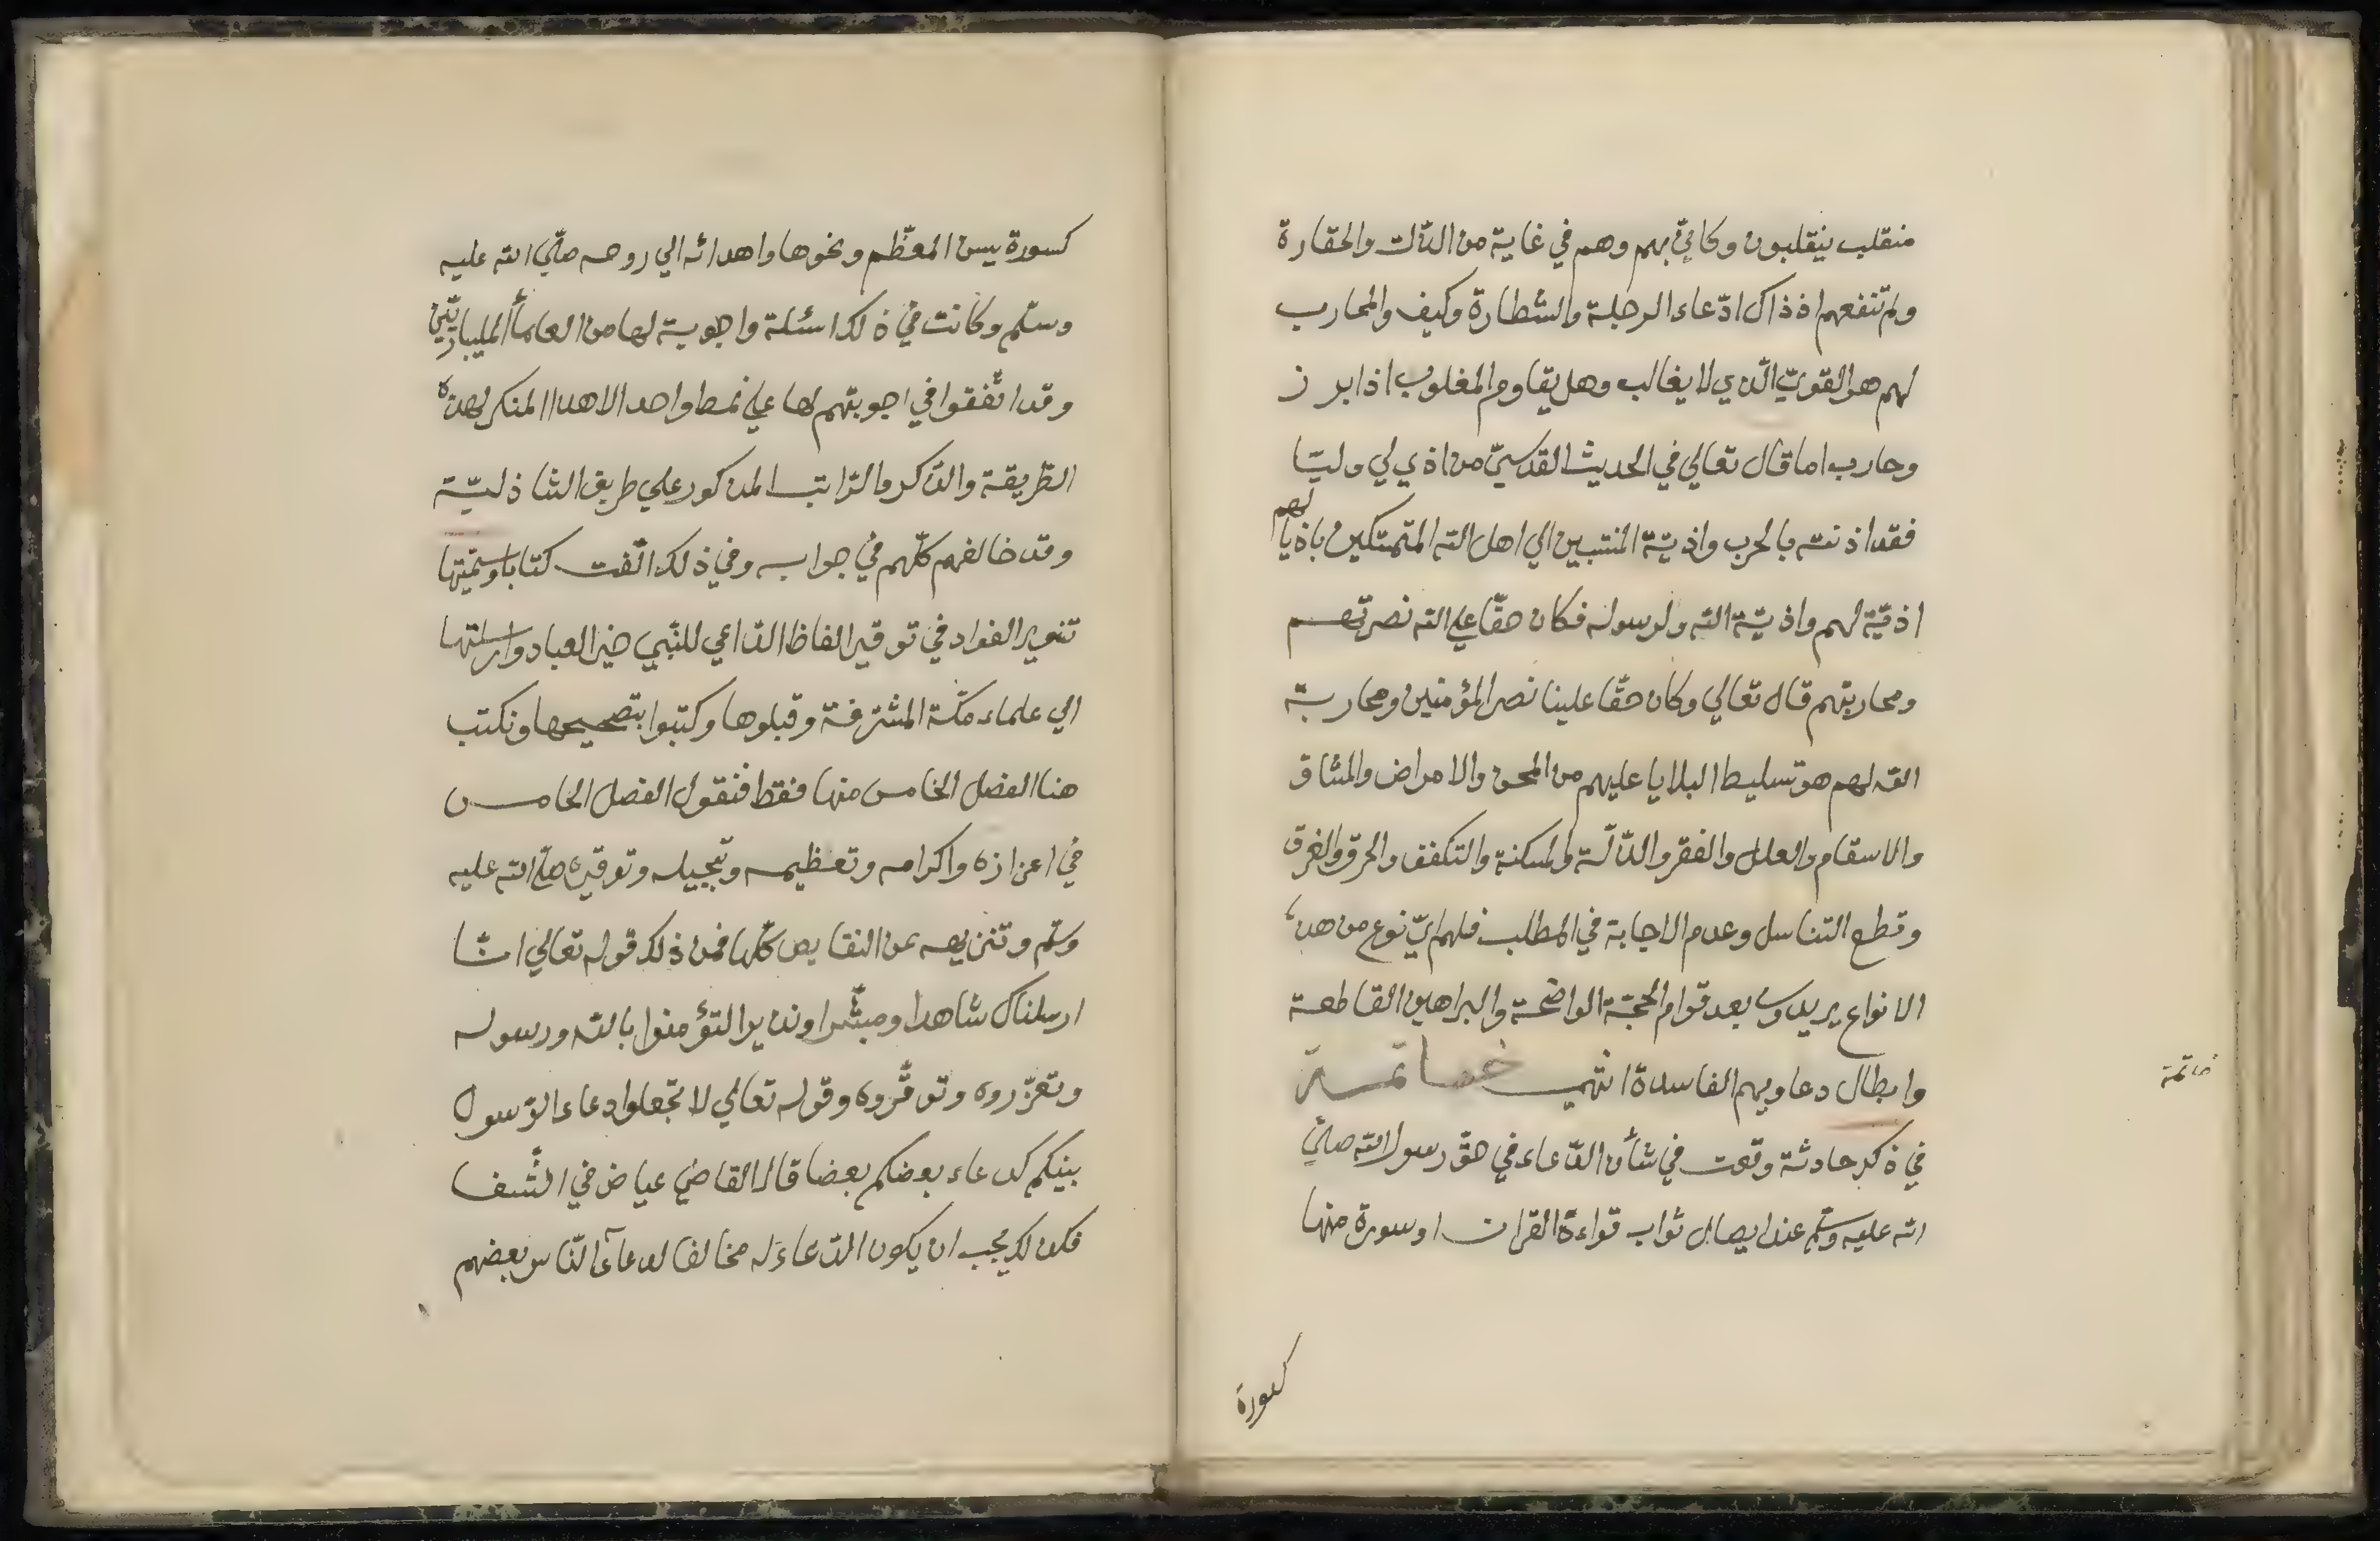 منقلب ينقلبون وكانّي بهم وهم في غاية من الذّلت والحقارة
ولم تنفعهم اذ ذاك ادّعاء الرجلة والشّطارة وكيف والمحارب
لهم هو القويّ الّذي لا يغالب وهل يقاوم المغلوب اذا برز
وحارب اما قال تعالي في الحديث القدسيّ من اذي لي وليّا
فقد اذنته بالحرب واذيّة المنتبين الي اهل الله المتمتكين باذيا لهم
اذيّة لهم واذيّة الله ولرسوله فكان حقّا علي الله نصرتهم
ومحاربتهم قال تعالي وكان حقّا علينا نصر المؤمنين ومحاربة
الله لهم هو تسليط البلايا عليهم من المحن والامراض والمشاق
والاسقام والعلل والفقر والذّلّة والمسكنة والتكفف والحرق والغرق
وقطع التناسل وعدم الاجابة في المطلب فلهم ايّ نوع من هذه
الانواع يريدون بعد قوام الحجّة الواضحة والبراهين القاطعة
وابطال دعاويهم الفاسدة انتهي خاتمة
خاتمة
في ذكر حادثة وقعت في شأن الدّعاء في حقّ رسول الله صلّي
الله عليه وسلّم عند ايصال ثواب قراءة القران او سورة منها
كسورة
كسورة يس المعظّم ونحوها واهدائه الي روحه صلّي الله عليه
وسلّم وكانت في ذلك اسئلة واجوبة لها من العلمأ المليباريّين
وقد اتّفقوا في اجوبتهم لها علي نمط واحد الا هذا المنكر لهذه
الطّريقة والذّكر والرّاتب المذكور علي طريق الشّاذليّة
وقد خالفهم كلّهم في جوابه وفي ذلك الّفت كتابا وسمّيتها
تنوير الفواد في توقير الفاظ الدّاعي للنّبي خير العباد وارسلتها
الي علماء مكّة المشرّفة وقبلوها وكتبوا بتصحيحها ونكتب
هنا الفصل الخامس منها فقط فنقول الفصل الخامس
في اعزازه واكرامه وتعظيمه وتبجيله وتوقيره صلّي الله عليه
وسلّم وتنزيهه عن النقايص كلّها فمن ذلك قوله تعالي انّا
ارسلناك شاهدا ومبشّرا ونذيرا لتؤمنوا بالله ورسوله
وتعزّروه وتوقّروه وقوله تعالي لا تجعلوا دعاء الرّسول
بينكم كدعاء بعضكم بعضا قال القاضي عياض في الشّفا
فكذلك يجب ان يكون الدّعاء له مخالفا لدعآء النّاس بعضهم